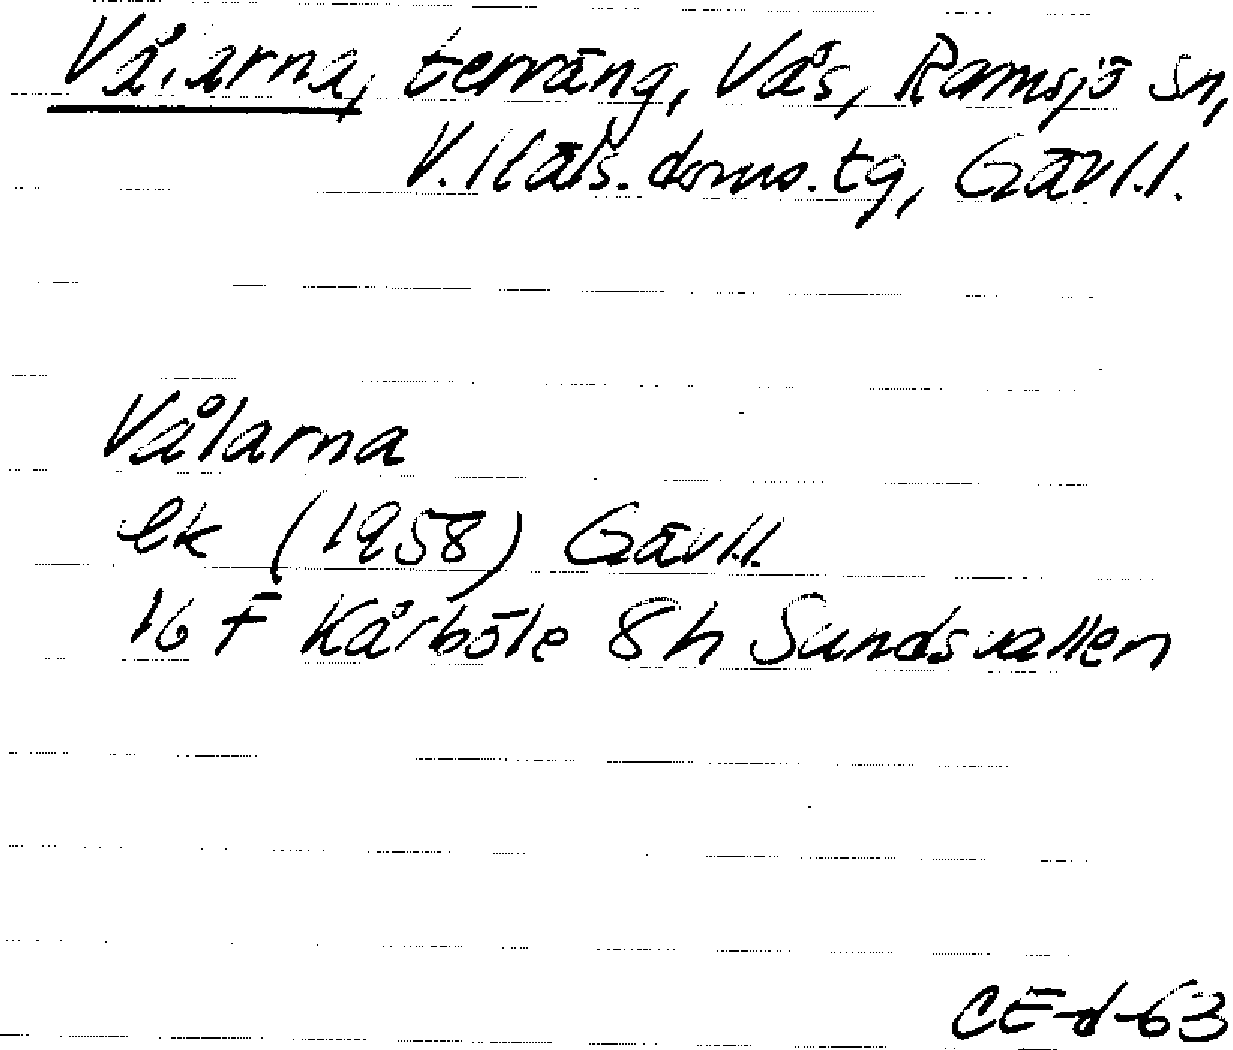 Vålarna, terräng, Vås, Ramsjö sn,
V. Häls. doms. tg, Gävl. l.
Vålarna
ek (1958) Gävl. l.
16 F Kårböle 8h Sundsvallen
CE-d-63